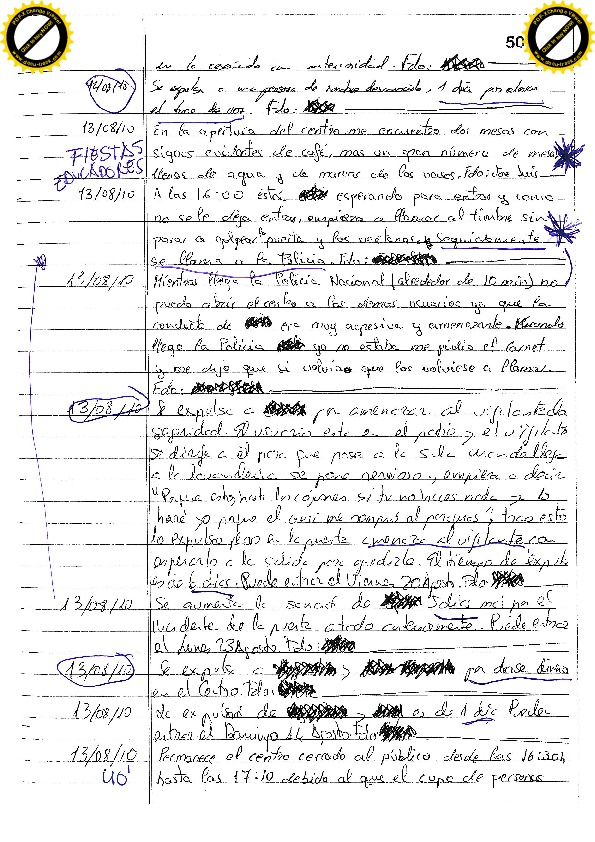 50
en la con intensidad. Fdo:
12/08/10 Se expulsa a una persona de nombre desconocido, 1 día por
el Fdo:
13/08/10 En la apertura del centro me encuentro dos mesas con
FIESTAS EDUCADORES
signos evidentes de café, mas un gran número de mesas
llenas de agua y de marcas de los vasos. Fdo:
13/08/10 A las 16:00 estás esperando para entrar y como
no se le deja entrar, empieza a llamar al timbre sin
parar a golpear puerta y las ventanas y seguidamente
se llama a la Policia. Fdo:
13/08/10 Mientras llega la Policía Nacional (alrededor de 10 min) no
puedo abrir el centro a los demas usuarios ya que la
conducta de era muy agresiva y amenazante. Cuando
llego la Policia ya no estaba me pidio el carnet
y me dijo que si volvia que los volviese a llamar
Fdo:
13/08/10 Se expulsa a por amenazar al vigilante de
seguridad. El usuario esta en el patio y el vigilante
se dirige a él para que pase a la sala
a la lavanderia se pone nervioso, empieza a decir
si tu no haces nada lo
haré yo
lo expulso pero en la puerta amenaza al vigilante con
esperarlo a la salida para agredirle. El tiempo de expulsión
es de 6 días. Puede entrar el Viernes 20 Agosto. Fdo:
13/08/10 Se aumenta la sanción de 3 días más por el
incidente de la puerta citado anteriormente. Puede entrar
el Lunes 23 Agosto. Fdo:
13/08/10 Se expulsa a y por
en el Centro. Fdo:
13/08/10 La expulsión de y es de 1 día. Pueden
entrar el Domingo 14 Agosto. Fdo:
13/08/10 Permanece el centro cerrado al público desde las 16:30h
40' hasta las 17:10 debido al que el cupo de personas